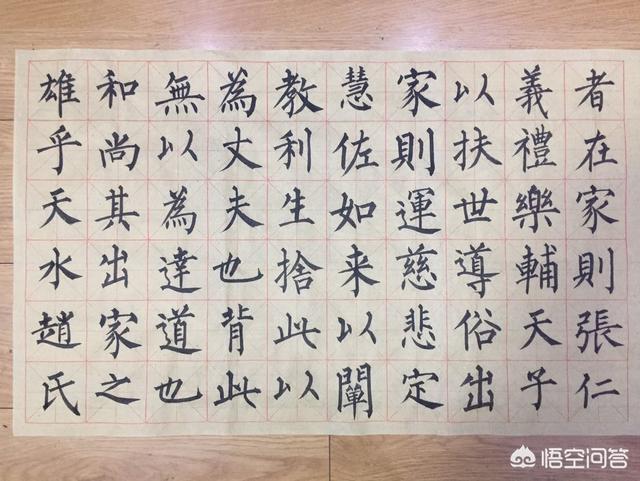 者在家則張仁
義禮樂輔天子
以扶世導俗出
家則運慈悲定
慧佐如来以闡
教利生捨此以
為丈夫也背此
無以為達道也
和尚其出家之
雄乎天水趙氏
悟空问答